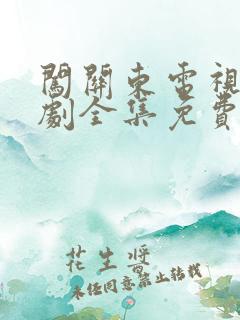 闖關東電視
劇全集免費
花生醬
未經同意禁止轉載